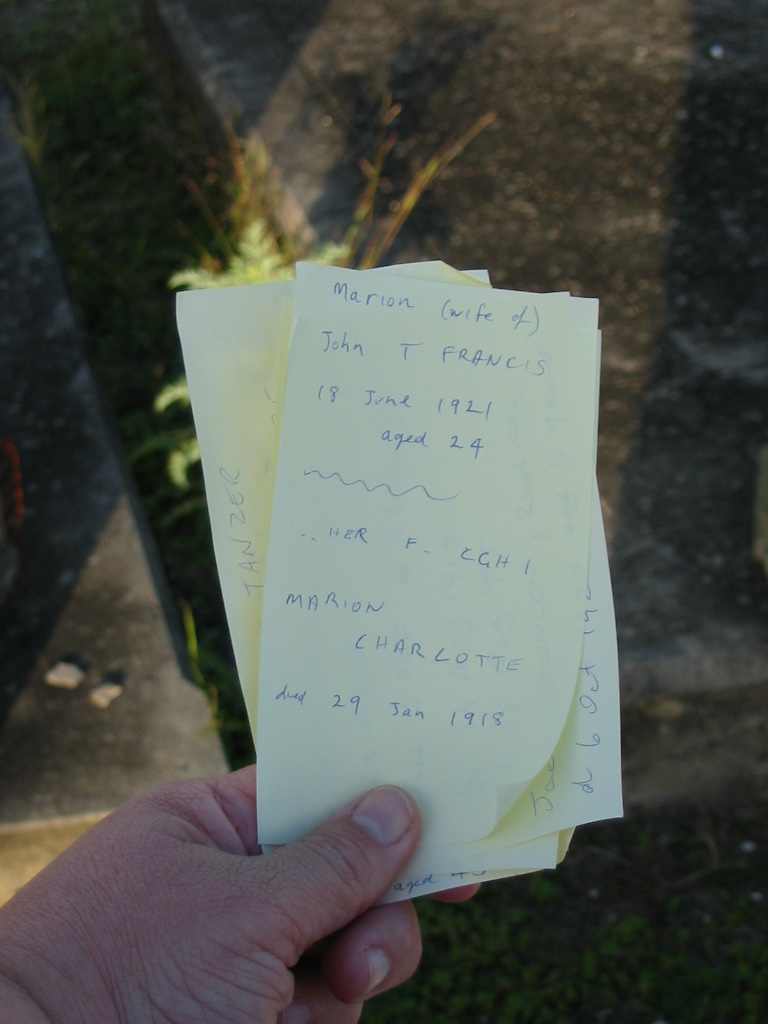 Marion (wife of)
John T FRANCIS
18 June 1921
aged 24
.. HER F. CGH I
MARION
CHARLOTTE
died 29 Jan 1918
TANZER
d 6 Oct
aged